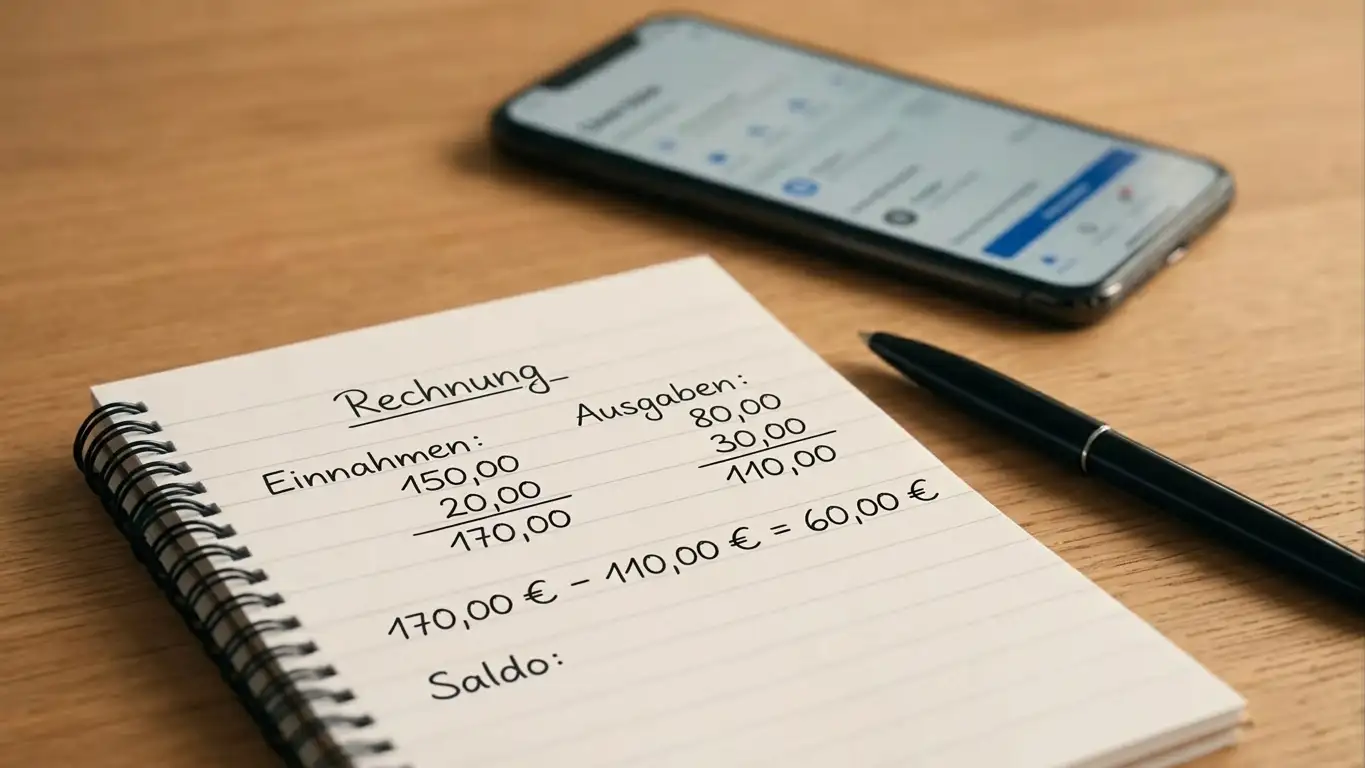 Rechnung
Einnahmen:
150,00
20,00
170,00
Ausgaben:
80,00
30,00
110,00
170,00 € – 110,00 € = 60,00 €
Saldo: